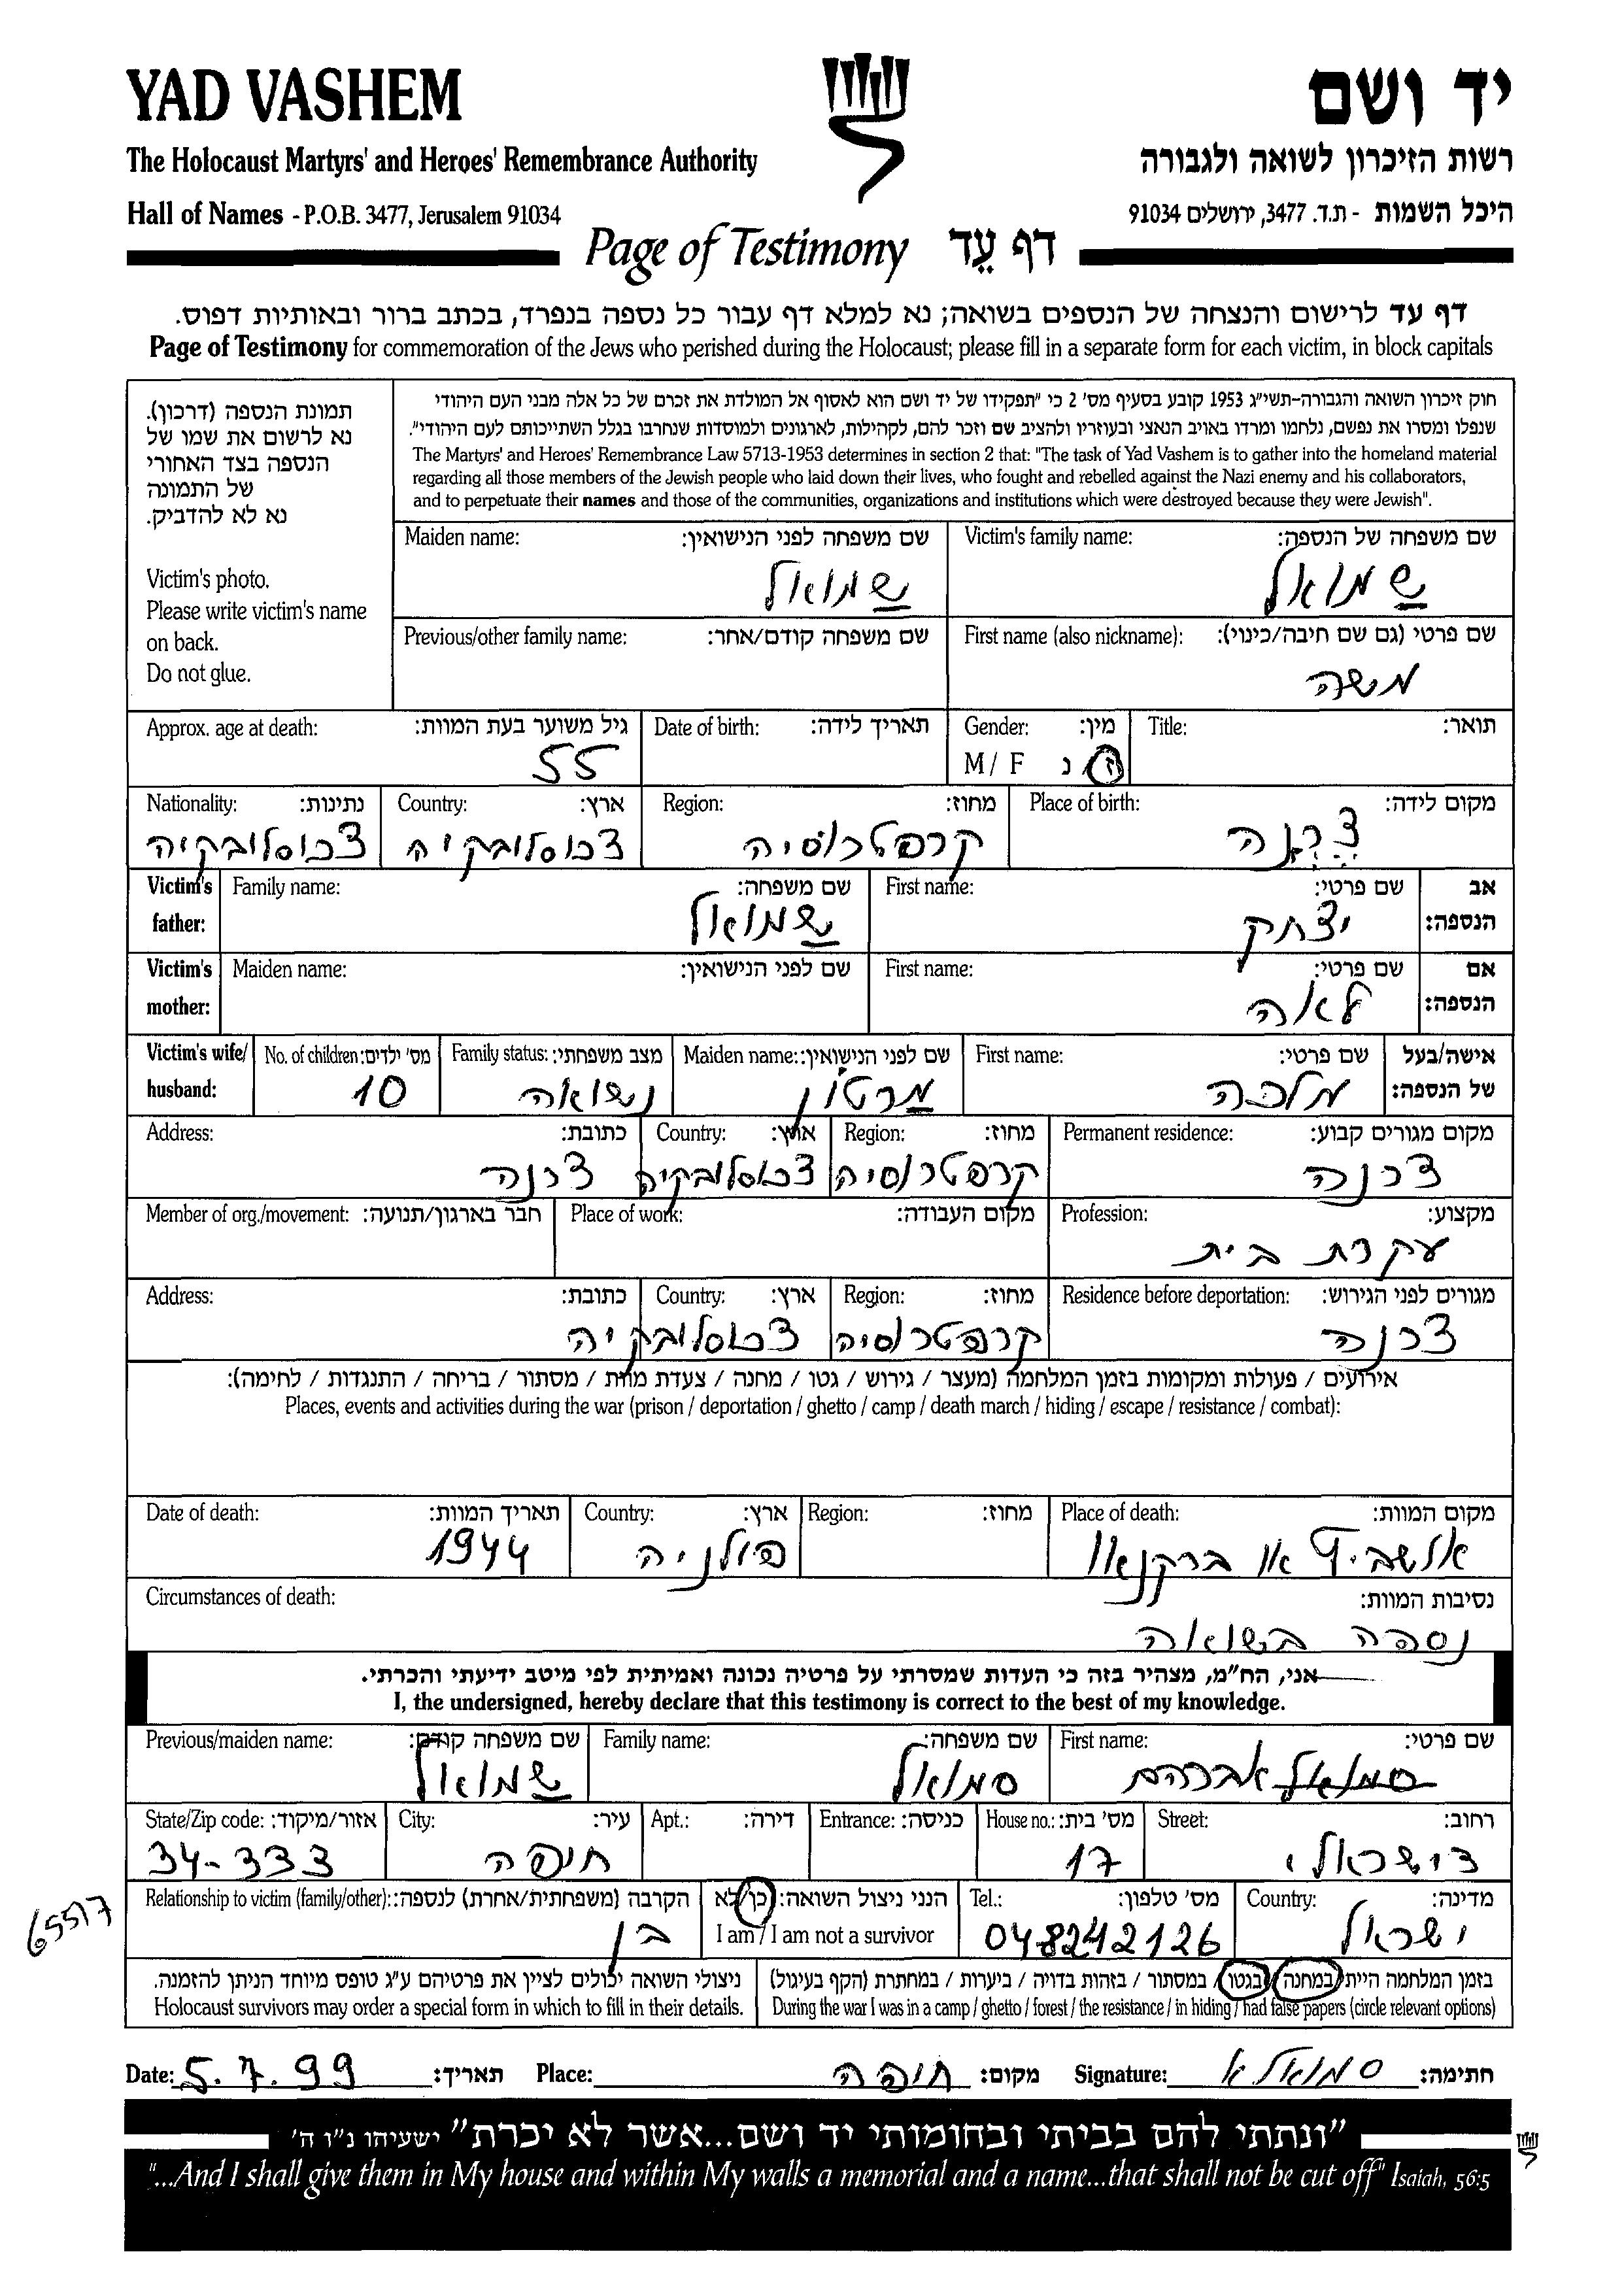 YAD VASHEM
יד ושם
The Holocaust Martyrs' and Heroes' Remembrance Authority
רשות הזיכרון לשואה ולגבורה
Hall of Names - P.O.B. 3477, Jerusalem 91034
היכל השמות - ת.ד. 3477, ירושלים 91034
Page of Testimony דף עֵד
דף עד לרישום והנצחה של הנספים בשואה; נא למלא דף עבור כל נספה בנפרד, בכתב ברור ובאותיות דפוס.
Page of Testimony for commemoration of the Jews who perished during the Holocaust; please fill in a separate form for each victim, in block capitals
תמונת הנספה (דרכון).
נא לרשום את שמו של
הנספה בצד האחורי
של התמונה
נא לא להדביק.
Victim's photo.
Please write victim's name
on back.
Do not glue.
חוק זיכרון השואה והגבורה-תשי"ג 1953 קובע בסעיף מס' 2 כי "תפקידו של יד ושם הוא לאסוף אל המולדת את זכרם של כל אלה מבני העם היהודי
שנפלו ומסרו את נפשם, נלחמו ומרדו באויב הנאצי ובעוזריו ולהציב שם וזכר להם, לקהילות, לארגונים ולמוסדות שנחרבו בגלל השתייכותם לעם היהודי".
The Martyrs' and Heroes' Remembrance Law 5713-1953 determines in section 2 that: "The task of Yad Vashem is to gather into the homeland material
regarding all those members of the Jewish people who laid down their lives, who fought and rebelled against the Nazi enemy and his collaborators,
and to perpetuate their names and those of the communities, organizations and institutions which were destroyed because they were Jewish".
Victim's family name: שם משפחה של הנספה:
שמואל
Maiden name: שם משפחה לפני הנישואין:
שמואל
First name (also nickname): שם פרטי (גם שם חיבה/כינוי):
משה
Previous/other family name: שם משפחה קודם/אחר:
Title: תואר:
Gender: מין:
M / F ז / נ
Date of birth: תאריך לידה:
Approx. age at death: גיל משוער בעת המוות:
55
Place of birth: מקום לידה:
צרנה
Region: מחוז:
קרפטרוסיה
Country: ארץ:
צכוסלובקיה
Nationality: נתינות:
צכוסלובקיה
Victim's father: אב הנספה:
First name: שם פרטי:
יצחק
Family name: שם משפחה:
שמואל
Victim's mother: אם הנספה:
First name: שם פרטי:
לאה
Maiden name: שם לפני הנישואין:
Victim's wife/ husband: אישה/בעל של הנספה:
First name: שם פרטי:
מלכה
Maiden name: שם לפני הנישואין:
מרטון
Family status: מצב משפחתי:
נשואה
No. of children: מס' ילדים:
10
Permanent residence: מקום מגורים קבוע:
צרנה
Region: מחוז:
קרפטרוסיה
Country: ארץ:
צכוסלובקיה
Address: כתובת:
צרנה
Profession: מקצוע:
עקרת בית
Place of work: מקום העבודה:
Member of org./movement: חבר בארגון/תנועה:
Residence before deportation: מגורים לפני הגירוש:
צרנה
Region: מחוז:
קרפטרוסיה
Country: ארץ:
צכוסלובקיה
Address: כתובת:
אירועים / פעולות ומקומות בזמן המלחמה (מעצר / גירוש / גטו / מחנה / צעדת מוות / מסתור / בריחה / התנגדות / לחימה):
Places, events and activities during the war (prison / deportation / ghetto / camp / death march / hiding / escape / resistance / combat):
Place of death: מקום המוות:
אושביץ או ברקנאו
Region: מחוז:
Country: ארץ:
פולניה
Date of death: תאריך המוות:
1944
Circumstances of death: נסיבות המוות:
נספה בשואה
אני, הח"מ, מצהיר בזה כי העדות שמסרתי על פרטיה נכונה ואמיתית לפי מיטב ידיעתי והכרתי.
I, the undersigned, hereby declare that this testimony is correct to the best of my knowledge.
First name: שם פרטי:
סמואל אברהם
Family name: שם משפחה:
סמואל
Previous/maiden name: שם משפחה קודם:
שמואל
Street: רחוב:
דישראלי
House no.: מס' בית:
17
Entrance: כניסה:
Apt.: דירה:
City: עיר:
חיפה
State/Zip code: אזור/מיקוד:
34-333
Country: מדינה:
ישראל
Tel.: מס' טלפון:
048242126
הנני ניצול השואה: כן/לא
I am / I am not a survivor
Relationship to victim (family/other): הקרבה (משפחתית/אחרת) לנספה:
בן
65517
בזמן המלחמה הייתי במחנה / בגטו / במסתור / בזהות בדויה / ביערות / במחתרת (הקף בעיגול)
During the war I was in a camp / ghetto / forest / the resistance / in hiding / had false papers (circle relevant options)
ניצולי השואה יכולים לציין את פרטיהם ע"ג טופס מיוחד הניתן להזמנה.
Holocaust survivors may order a special form in which to fill in their details.
Date: 5.7.99 תאריך:
Place: חיפה מקום:
Signature: סמואל א חתימה:
"ונתתי להם בביתי ובחומותי יד ושם...אשר לא יכרת" ישעיהו נ"ו ה'
"...And I shall give them in My house and within My walls a memorial and a name...that shall not be cut off" Isaiah, 56:5